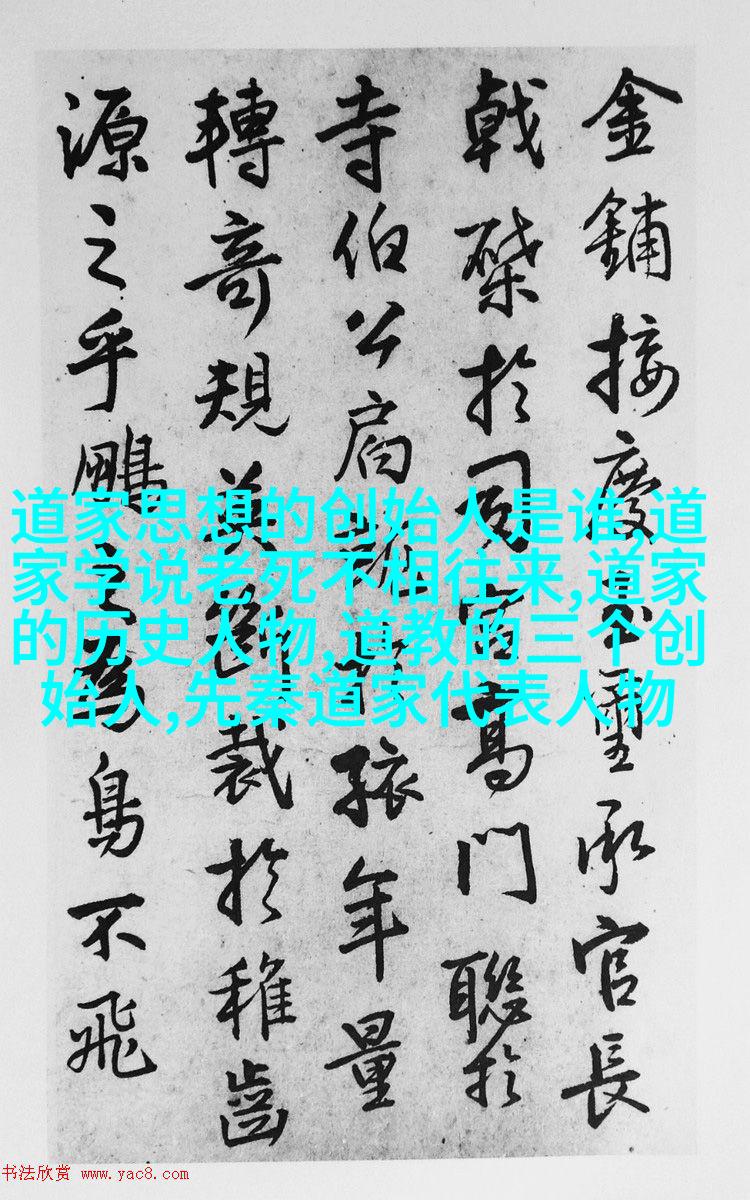 金鋪接慶不墜承官長
戟棨於司宮高門聯於
寺伯公肩 孩年量
轉奇規英 裁於稚齒
源之乎鵬之為鳥不飛
道家思想的创始人是谁,道
家学说老死不相往来,道家
的历史人物,道教的三个创
始人,先秦道家代表人物
书法欣赏 www.yac8.com